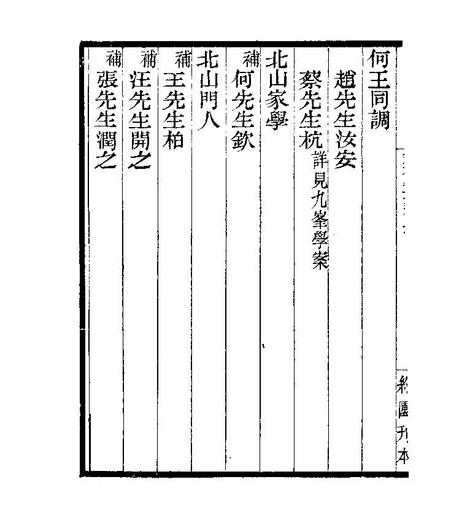 何王同調
趙先生汝安
蔡先生杭詳見九峯學案
北山家學
補何先生欽
北山門人
補王先生柏
補汪先生開之
補張先生潤之
刊本